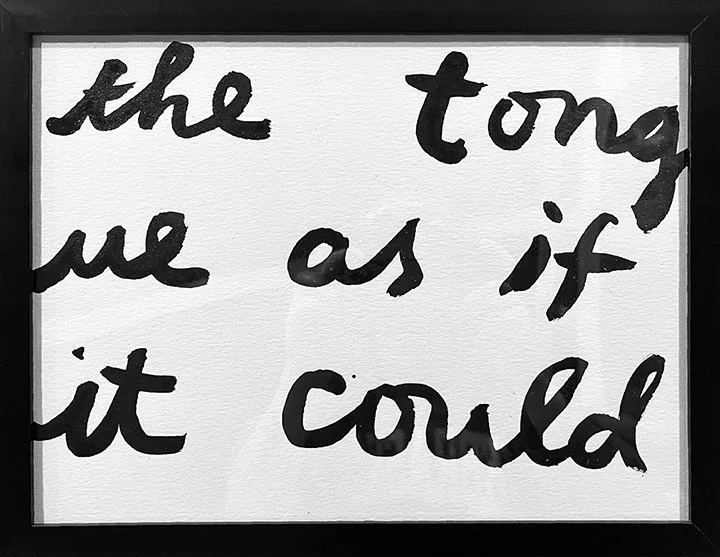 the tong
ue as if
it could